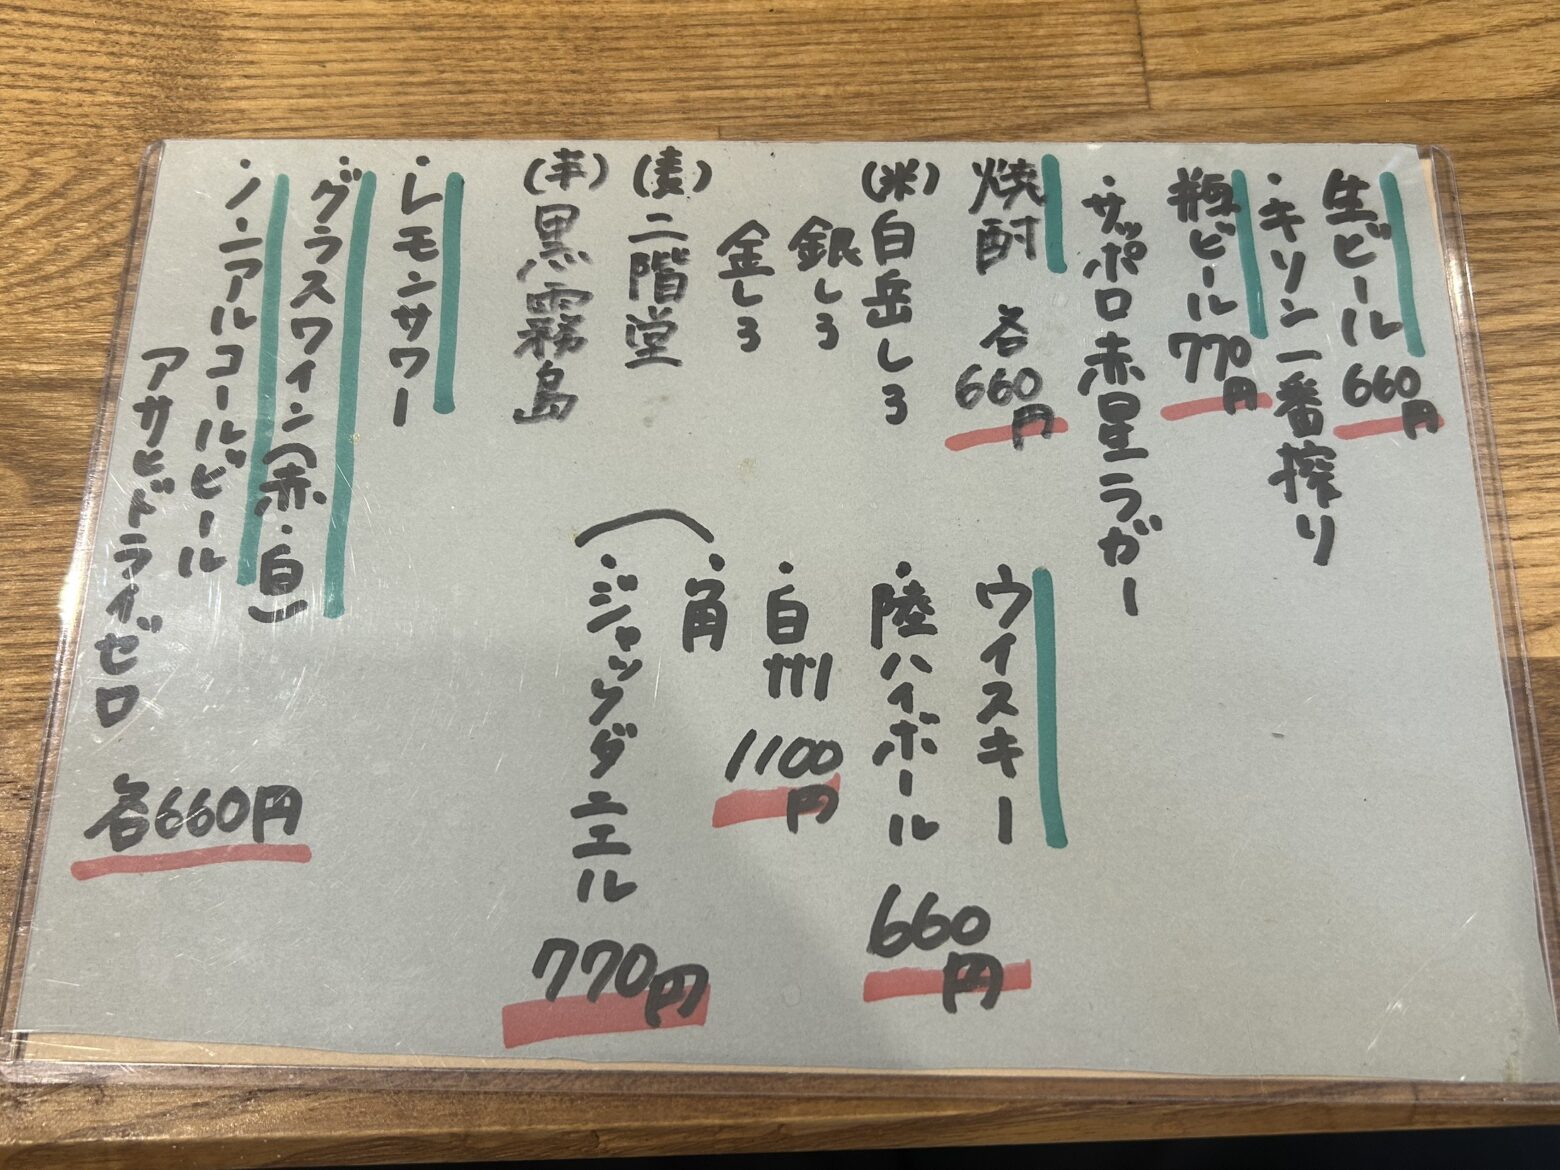 生ビール 660円
・キリン一番搾り
瓶ビール 770円
・サッポロ赤星ラガー
焼酎 各660円
(米)白岳しろ
銀しろ
金しろ
(麦)二階堂
(芋)黒霧島
ウイスキー
・陸ハイボール 660円
・白州 1100円
・角
・ジャックダニエル
770円
・レモンサワー
・グラスワイン(赤・白)
・ノンアルコールビール
アサヒドライゼロ
各660円